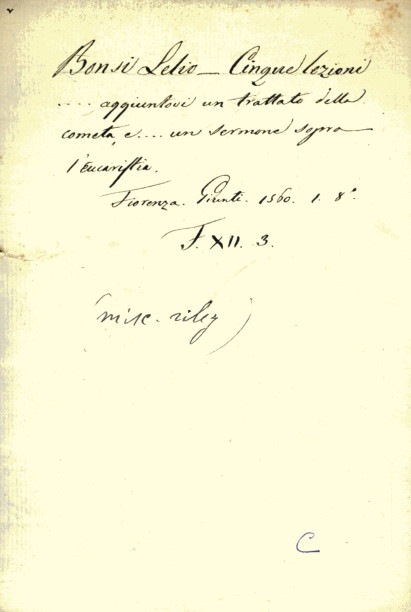 Bonsi Lelio — Cinque lezioni
.... aggiuntovi un trattato della
cometa, e .... un sermone sopra
l'Eucaristia.
Fiorenza. Giunti. 1560. 1. 8°
F. XII. 3.
(misc. riley)
C